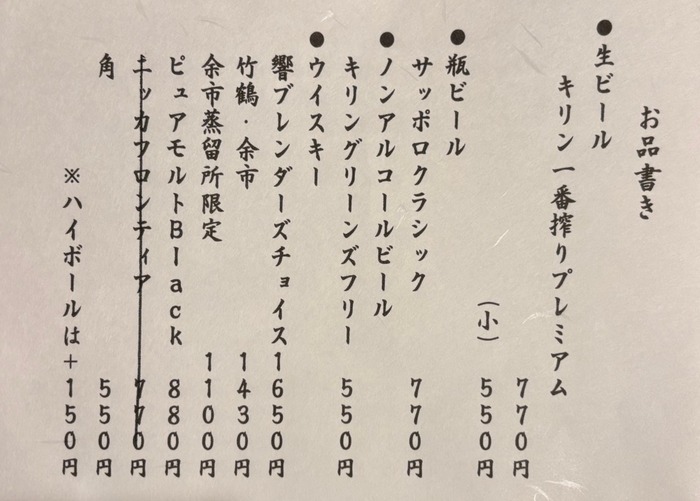 お品書き
●生ビール
キリン一番搾りプレミアム
770円
(小) 550円
●瓶ビール
サッポロクラシック 770円
●ノンアルコールビール
キリングリーンズフリー 550円
●ウイスキー
響ブレンダーズチョイス 1650円
竹鶴・余市 1430円
余市蒸留所限定 1100円
ピュアモルトBlack 880円
ニッカフロンティア 770円
角 550円
※ハイボールは+150円